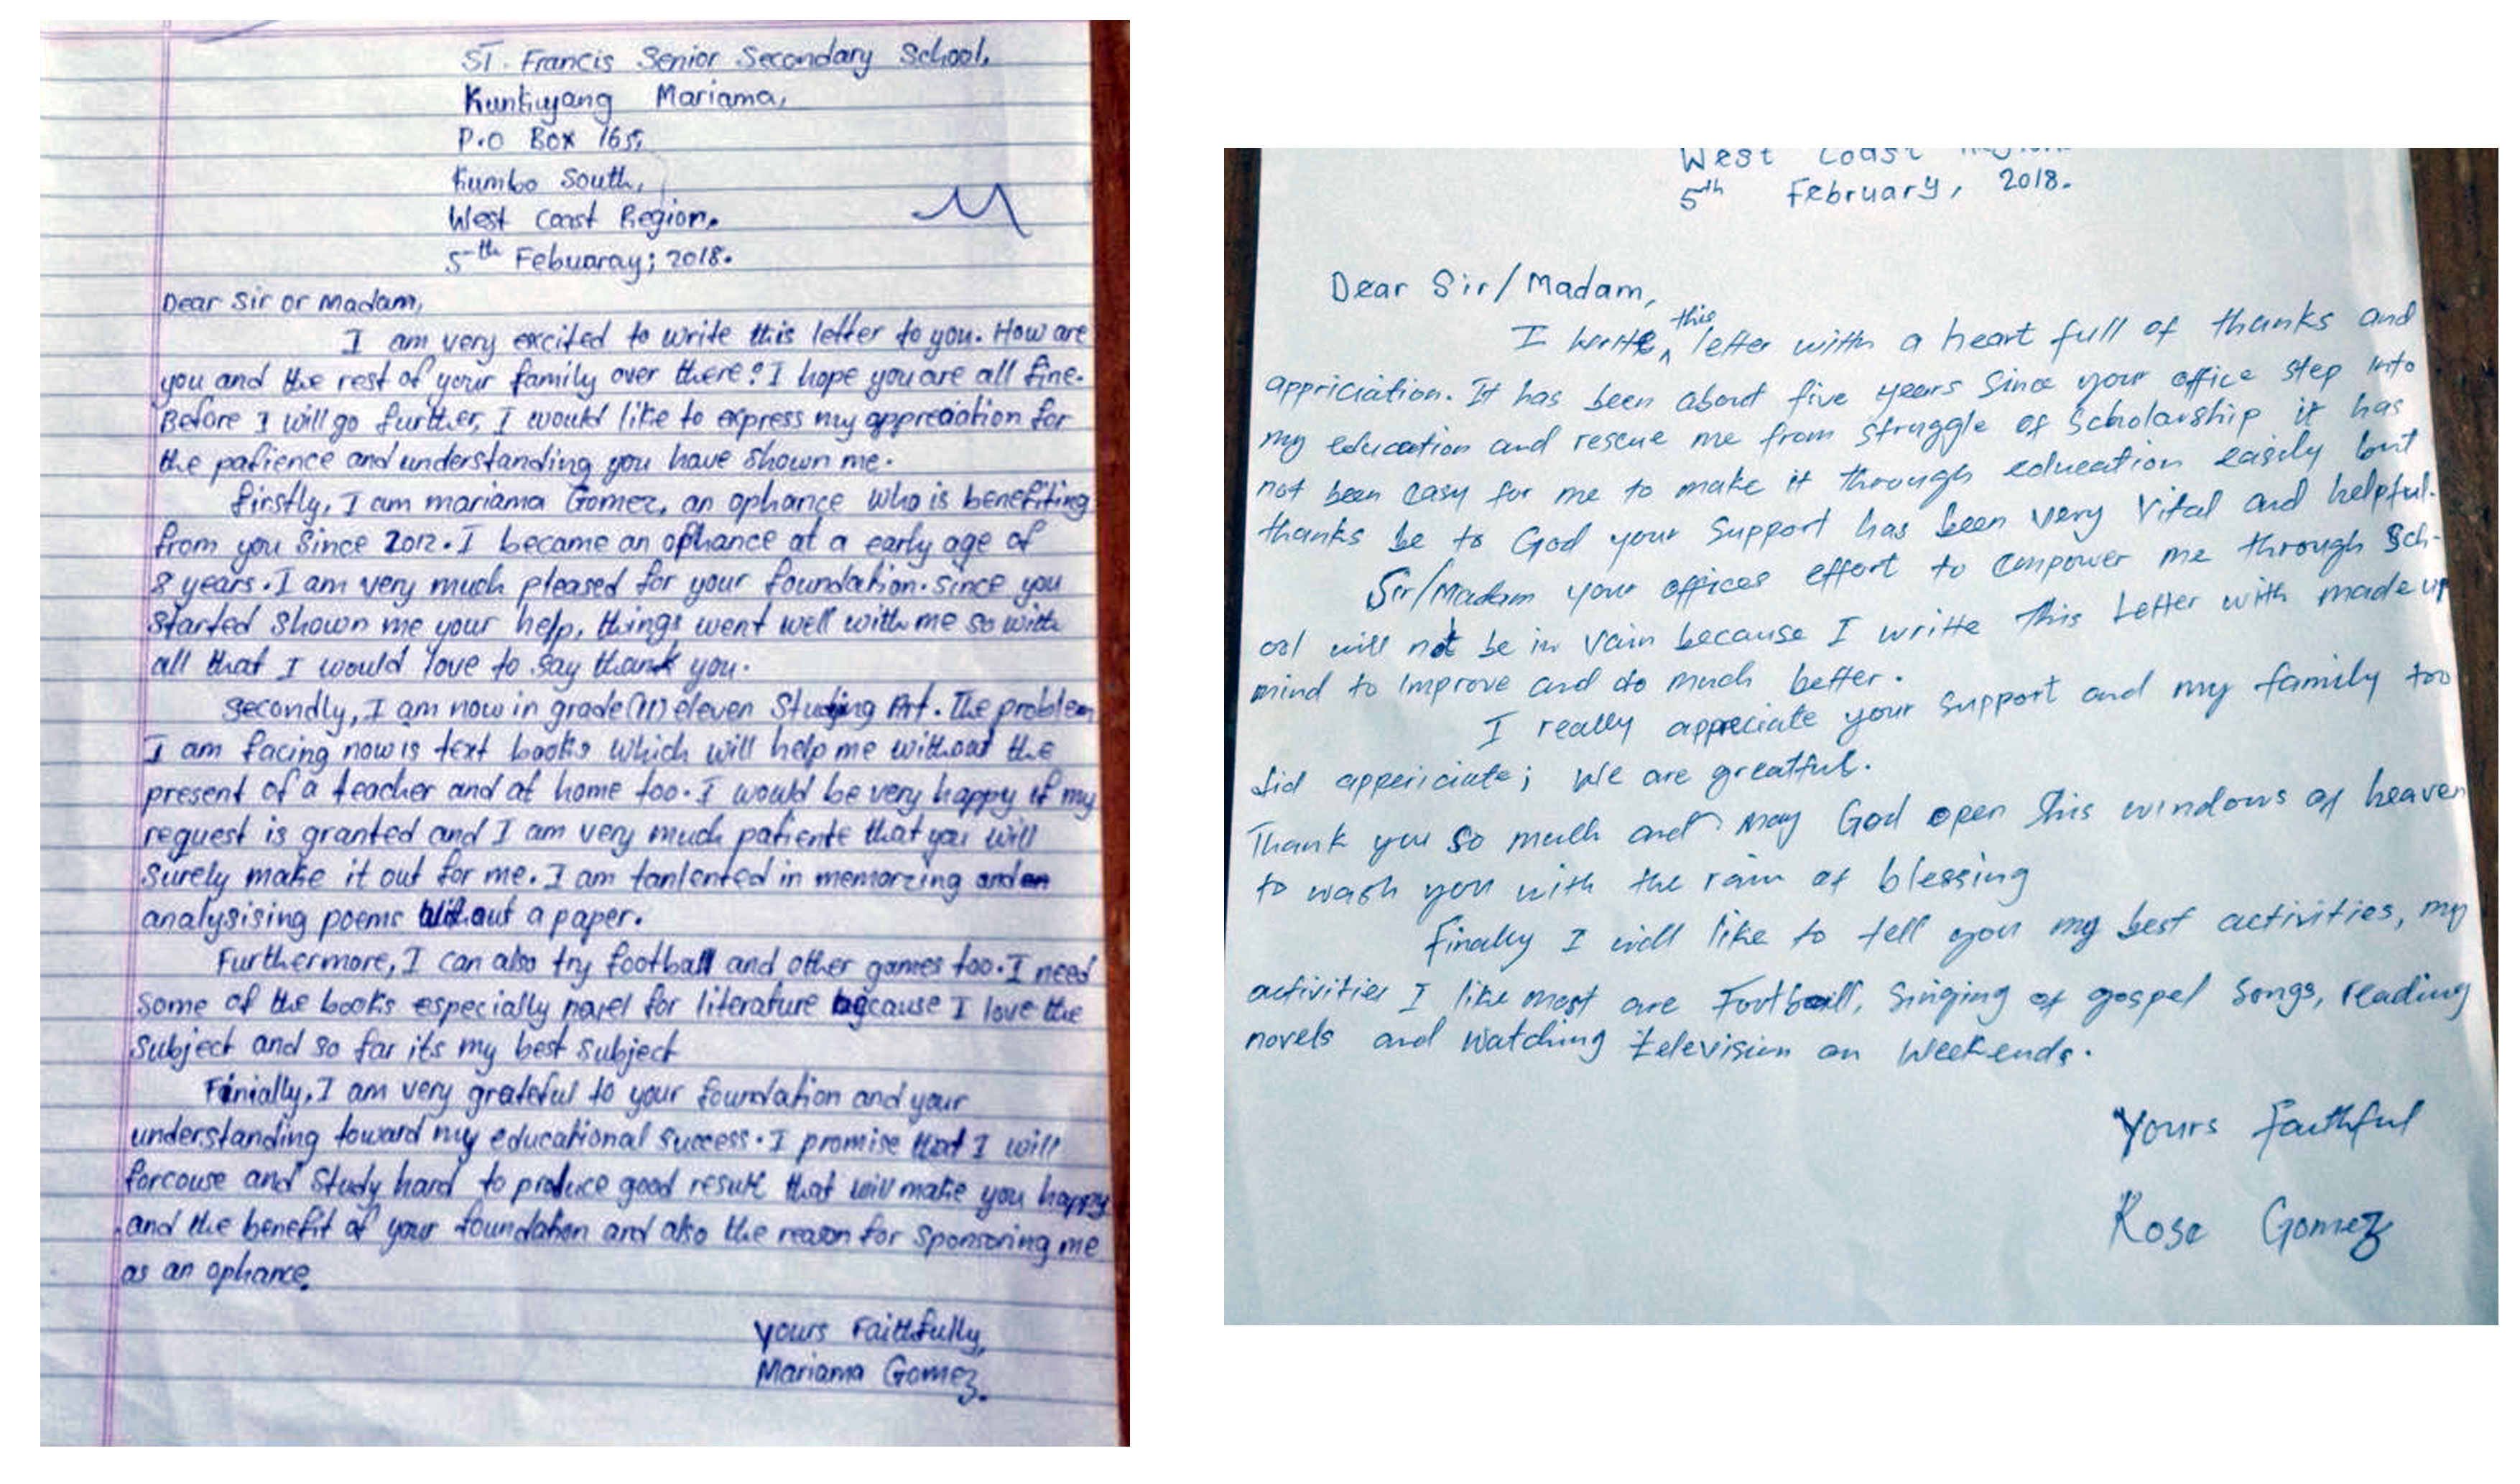 ST. Francis Senior Secondary School,
Kunkuyang Mariama,
P.O Box 165,
Kumbo South,
West Coast Region.
5th Febuaray; 2018.
Dear Sir or Madam,
I am very excited to write this letter to you. How are
you and the rest of your family over there? I hope you are all fine.
Before I will go further, I would like to express my appreciation for
the patience and understanding you have shown me.
firstly, I am mariama Gomez, an ophance who is benefiting
from you since 2012. I became an ophance at a early age of
8 years. I am very much pleased for your foundation. since you
started shown me your help, things went well with me so with
all that I would love to say thank you.
secondly, I am now in grade (11) eleven Studying Art. The problem
I am facing now is text books which will help me without the
present of a teacher and at home too. I would be very happy if my
request is granted and I am very much patiente that you will
surely make it out for me. I am tanlented in memorzing and
analysising poems without a paper.
Furthermore, I can also try football and other games too. I need
some of the books especially novel for literature because I love the
subject and so far its my best subject
Finially, I am very grateful to your foundation and your
understanding toward my educational success. I promise that I will
forcouse and study hard to produce good result that will make you happy
and the benefit of your foundation and also the reason for sponsoring me
as an ophance.
Yours Faithfully,
Mariama Gomez.
West Coast Region
5th February, 2018.
Dear Sir/Madam,
I write this letter with a heart full of thanks and
appriciation. It has been about five years since your office step into
my education and rescue me from struggle of Scholarship it has
not been easy for me to make it through education easily but
thanks be to God your support has been very vital and helpful.
Sir/Madam your offices effort to empower me through Sch-
ool will not be in vain because I writte this Letter with made up
mind to improve and do much better.
I really appreciate your support and my family too
did appericiate; We are greatful.
Thank you so much and may God open this windows of heaven
to wash you with the rain of blessing
Finally I will like to tell you my best activities, my
activities I like most are Football, Singing of gospel songs, reading
novels and watching television on Weekends.
Yours Faithful
Rose Gomez